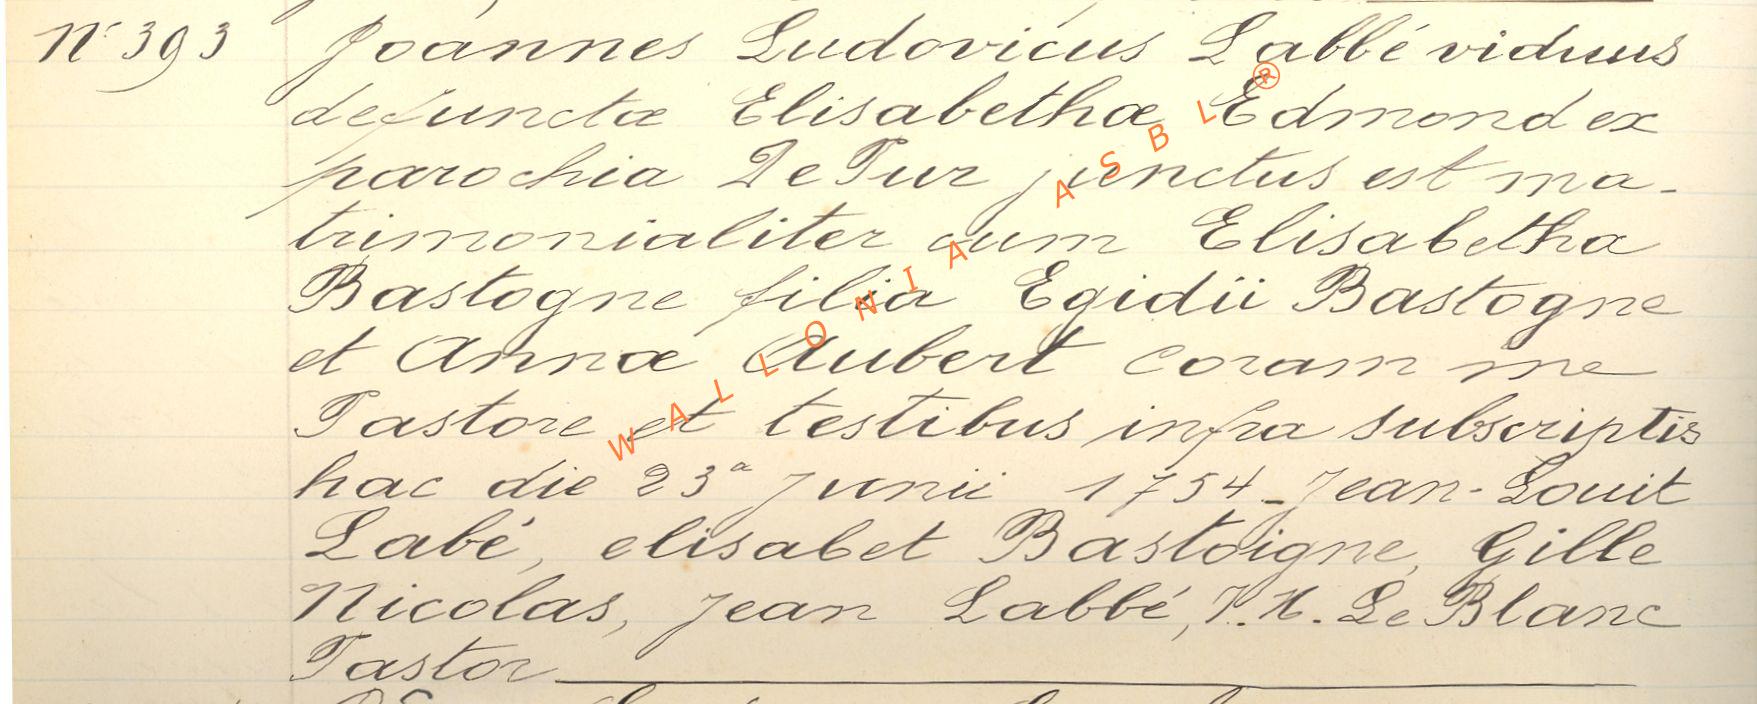 N° 393 Joannes Ludovicus Labbé viduus
defunctæ Elisabethæ Edmond ex
parochia De Pur junctus est ma-
trimonialiter cum Elisabetha
Bastogne filia Egidii Bastogne
et Annæ Aubert coram me
Pastore et testibus infra subscriptis
hac die 23ª Junii 1754 _ Jean-Louit
Labé, elisabet Bastoigne, Gille
Nicolas, Jean Labbé, J. H. Le Blanc
Pastor
WALLONIA ASBL ®